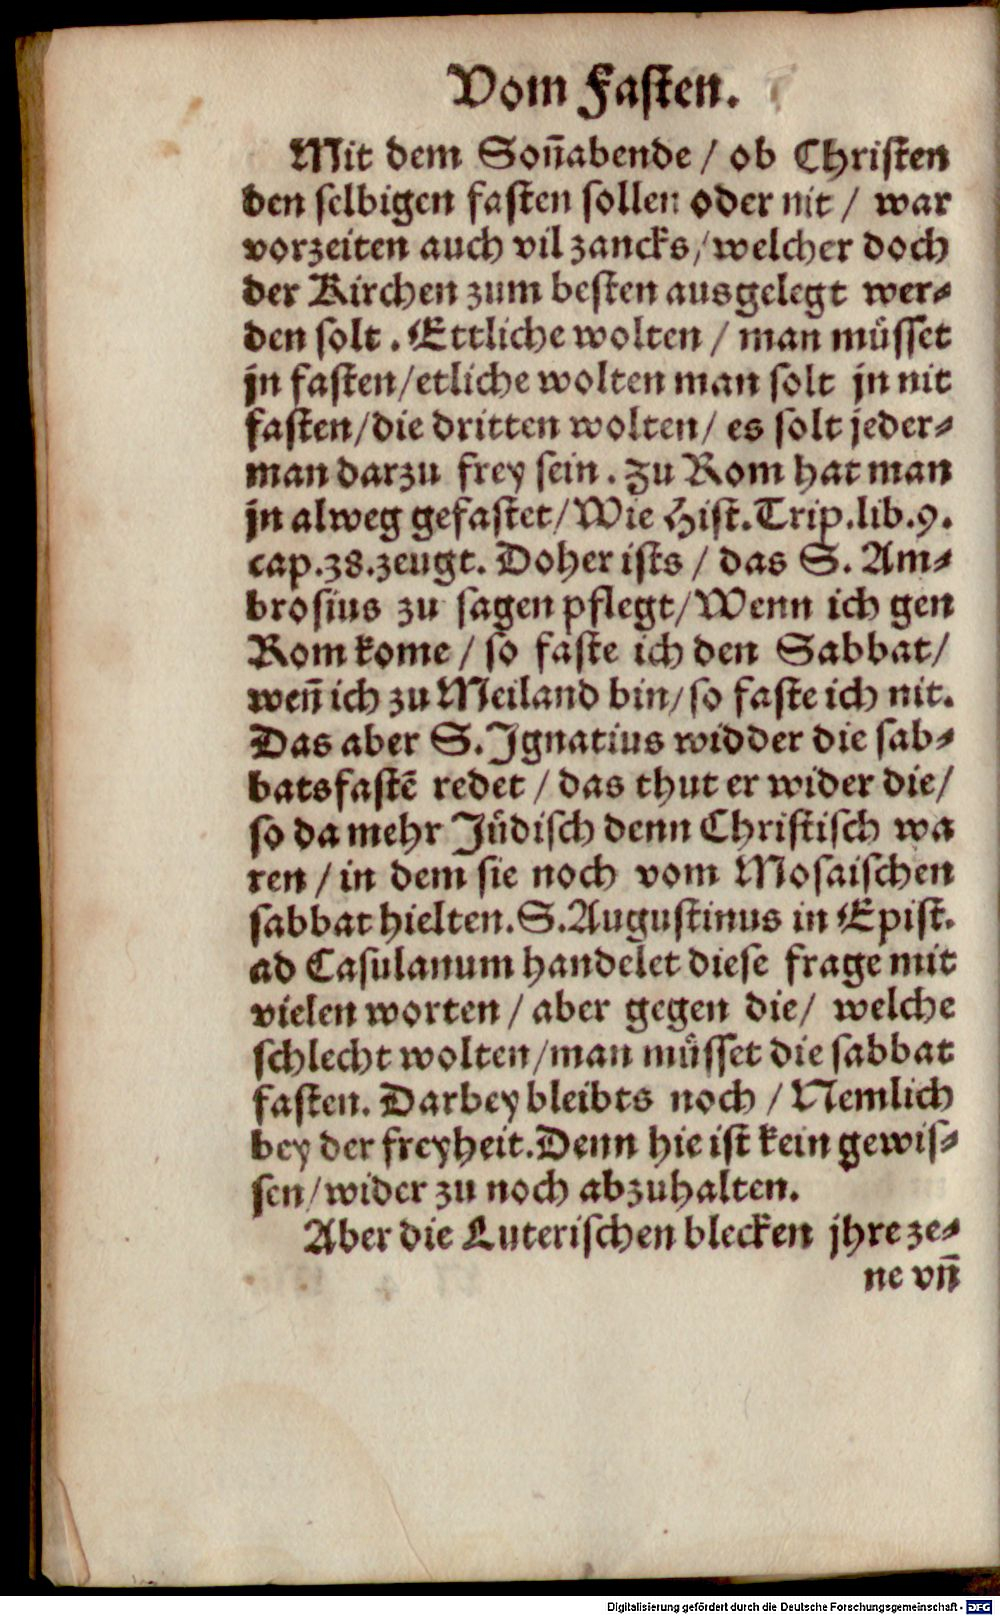 Vom Fasten.
Mit dem Soñabende / ob Christen
den selbigen fasten sollen oder nit / war
vorzeiten auch vil zancks / welcher doch
der Kirchen zum besten ausgelegt wer⸗
den solt. Ettliche wolten / man muͤsset
jn fasten / etliche wolten man solt jn nit
fasten / die dritten wolten / es solt jeder⸗
man darzu frey sein. Zu Rom hat man
jn alweg gefastet / Wie Hist. Trip. lib. 9.
cap. 38. zeugt. Doher ists / das S. Am⸗
brosius zu sagen pflegt / Wenn ich gen
Rom kome / so faste ich den Sabbat /
weñ ich zu Meiland bin / so faste ich nit.
Das aber S. Ignatius widder die sab⸗
batsfastẽ redet / das thut er wider die /
so da mehr Juͤdisch denn Christisch wa
ren / in dem sie noch vom Mosaischen
sabbat hielten. S. Augustinus in Epist.
ad Casulanum handelet diese frage mit
vielen worten / aber gegen die / welche
schlecht wolten / man muͤsset die sabbat
fasten. Darbey bleibts noch / Nemlich
bey der freyheit. Denn hie ist kein gewis⸗
sen / wider zu noch abzuhalten.
Aber die Luterischen blecken jhre ze⸗
ne vñ
Digitalisierung gefördert durch die Deutsche Forschungsgemeinschaft - DFG